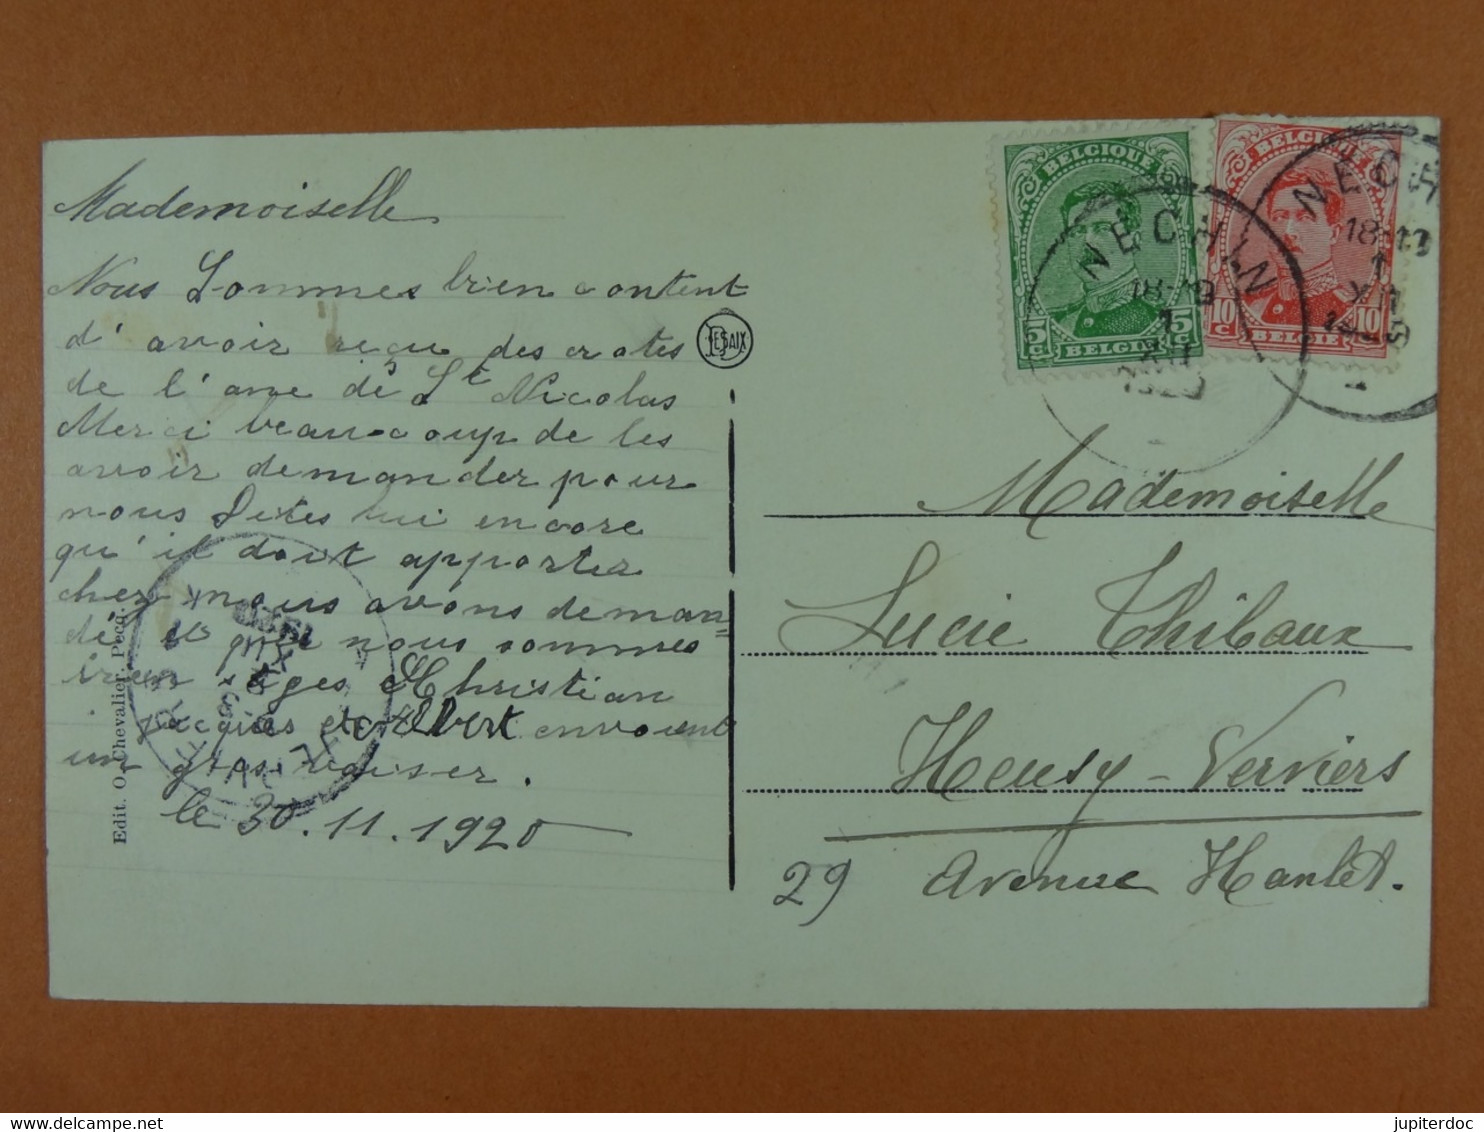 Mademoiselle
Nous Sommes bien content
d'avoir reçu des crotes
de l'ane de St Nicolas
Merci beaucoup de les
avoir demander pour
nous Dites lui encore
qu'il doit apporter
chez nous avons deman=
dé que nous sommes
bien sages Christian
jacques et Albert envoient
un gros baiser.
le 30.11.1920
Edit. O. Chevalier, Pecq.
DESAIX
BELGIQUE
5c 5c
BELGIE
BELGIQUE
10c 10c
BELGIË
NECHIN
18-19
1
XII
1920
NECH
18-19
1
XII
VERVIERS
1920
Mademoiselle
Lucie Thibaux
Heusy - Verviers
29 Avenue Hanlet.
jupiterdoc
delcampe.net